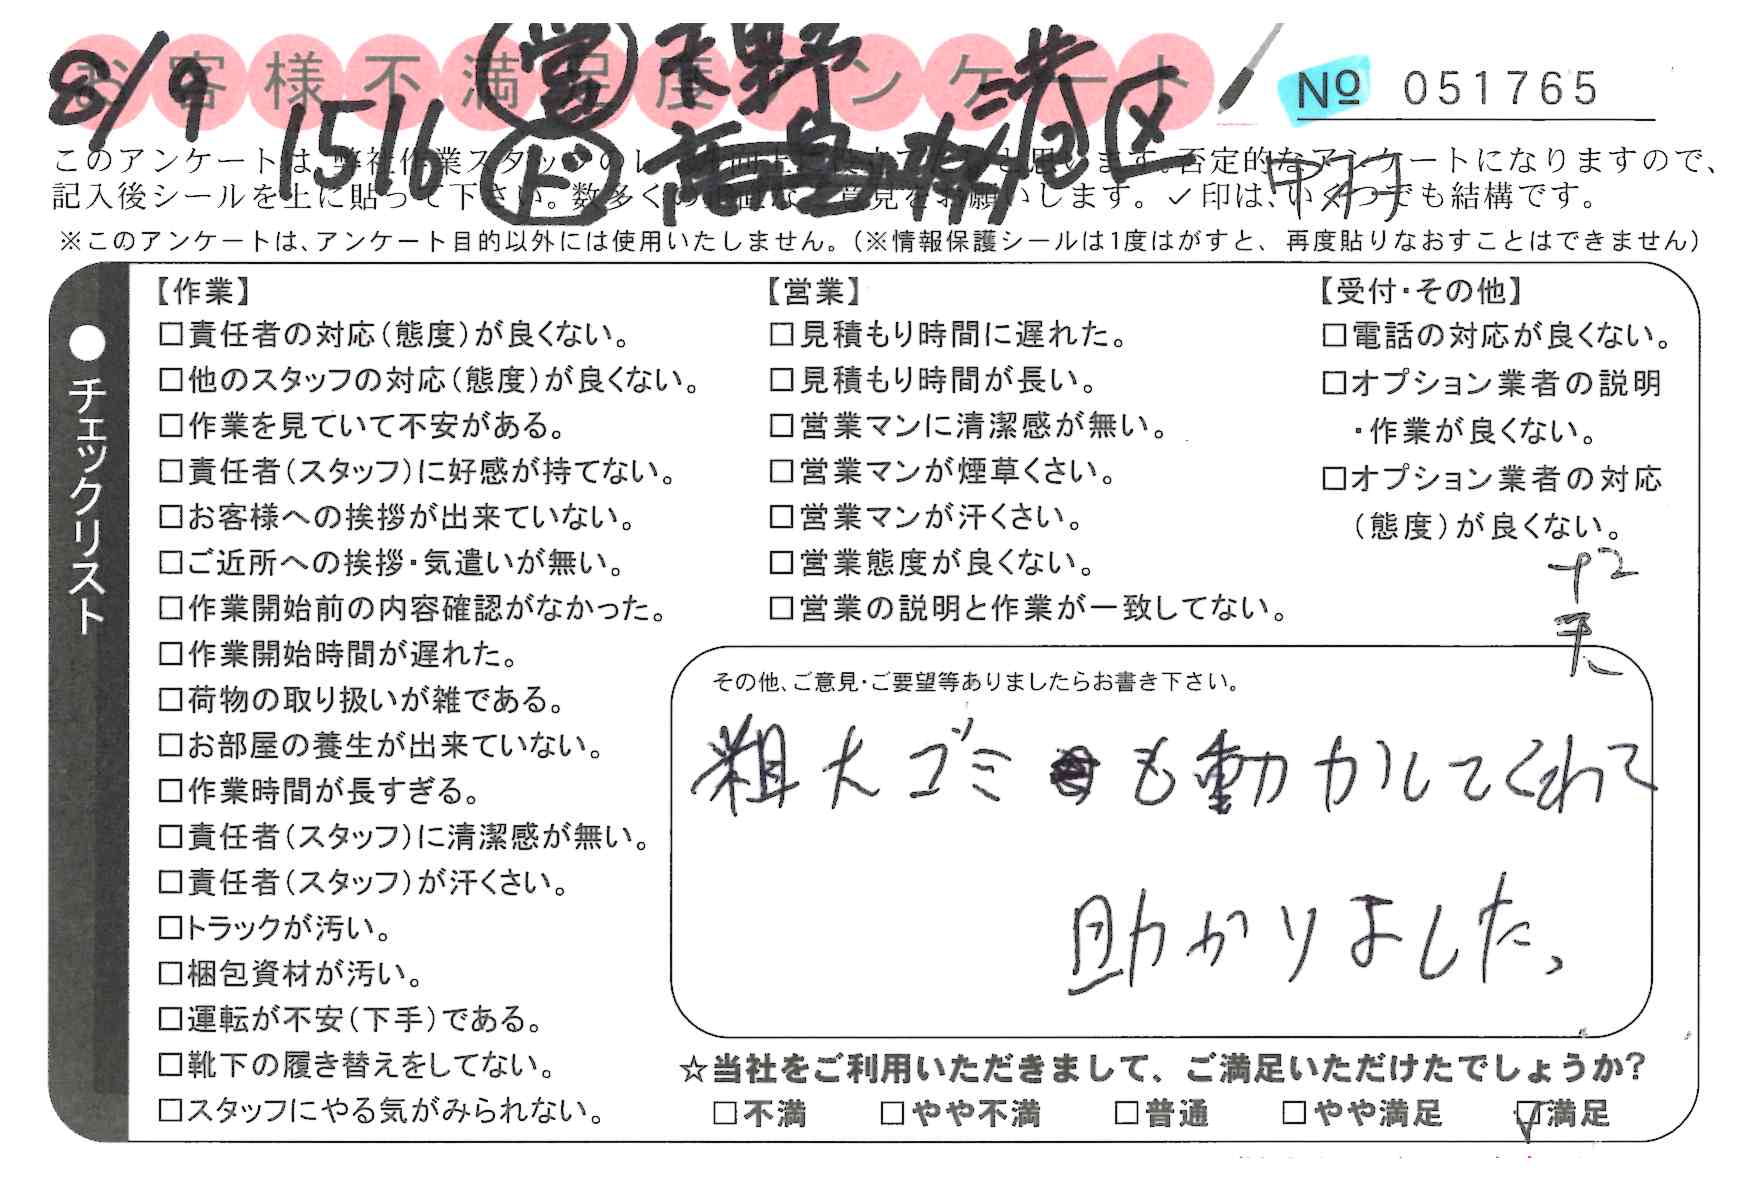 お客様不満足度アンケート
8/9
1516
営
ド
港区
№ 051765
このアンケートは、弊社作業スタッフのレ 思います。否定的なアンケートになりますので、
記入後シールを上に貼って下さい。数多くの 意見をお願いします。✓印は、いくつでも結構です。
※このアンケートは、アンケート目的以外には使用いたしません。（※情報保護シールは1度はがすと、再度貼りなおすことはできません）
●チェックリスト
【作業】
□責任者の対応（態度）が良くない。
□他のスタッフの対応（態度）が良くない。
□作業を見ていて不安がある。
□責任者（スタッフ）に好感が持てない。
□お客様への挨拶が出来ていない。
□ご近所への挨拶・気遣いが無い。
□作業開始前の内容確認がなかった。
□作業開始時間が遅れた。
□荷物の取り扱いが雑である。
□お部屋の養生が出来ていない。
□作業時間が長すぎる。
□責任者（スタッフ）に清潔感が無い。
□責任者（スタッフ）が汗くさい。
□トラックが汚い。
□梱包資材が汚い。
□運転が不安（下手）である。
□靴下の履き替えをしてない。
□スタッフにやる気がみられない。
【営業】
□見積もり時間に遅れた。
□見積もり時間が長い。
□営業マンに清潔感が無い。
□営業マンが煙草くさい。
□営業マンが汗くさい。
□営業態度が良くない。
□営業の説明と作業が一致してない。
【受付・その他】
□電話の対応が良くない。
□オプション業者の説明
・作業が良くない。
□オプション業者の対応
（態度）が良くない。
その他、ご意見・ご要望等ありましたらお書き下さい。
粗大ゴミも動かしてくれて
助かりました。
☆当社をご利用いただきまして、ご満足いただけたでしょうか？
□不満 □やや不満 □普通 □やや満足 ☑満足